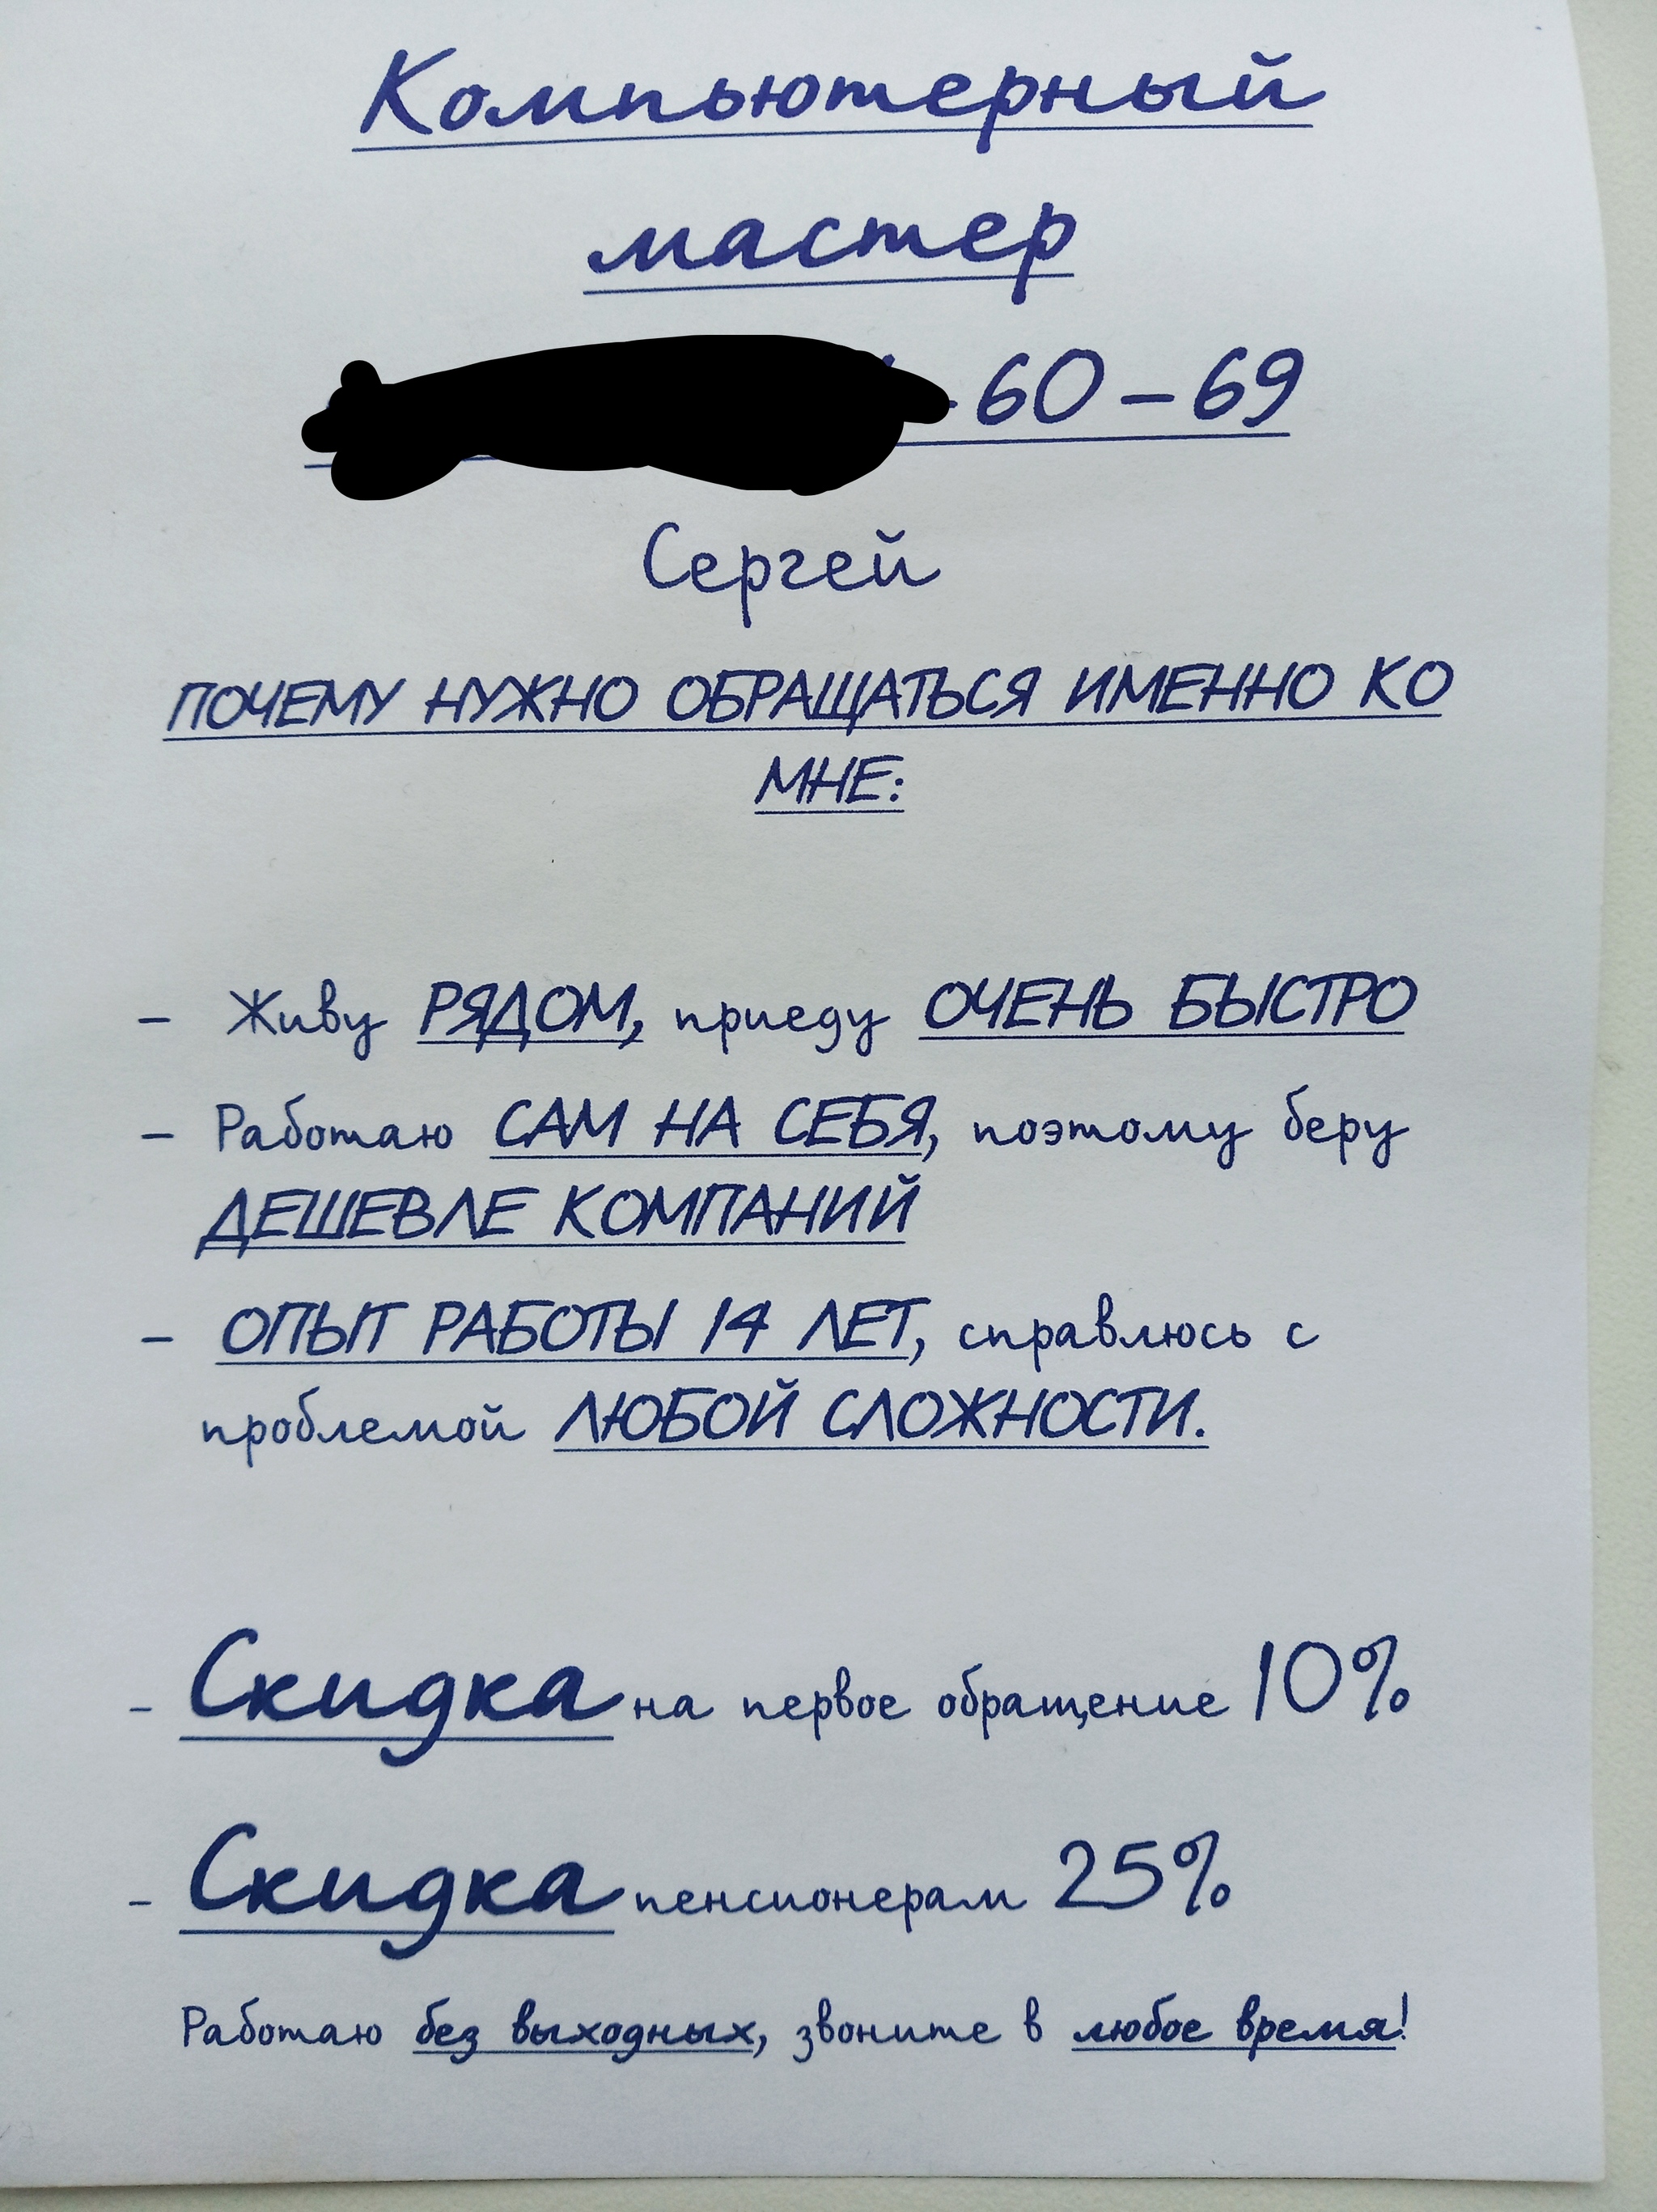 Компьютерный
мастер
60-69
Сергей
ПОЧЕМУ НУЖНО ОБРАЩАТЬСЯ ИМЕННО КО
МНЕ:
- Живу РЯДОМ, приеду ОЧЕНЬ БЫСТРО
- Работаю САМ НА СЕБЯ, поэтому беру
ДЕШЕВЛЕ КОМПАНИЙ
- ОПЫТ РАБОТЫ 14 ЛЕТ, справлюсь с
проблемой ЛЮБОЙ СЛОЖНОСТИ.
- Скидка на первое обращение 10%
- Скидка пенсионерам 25%
Работаю без выходных, звоните в любое время!